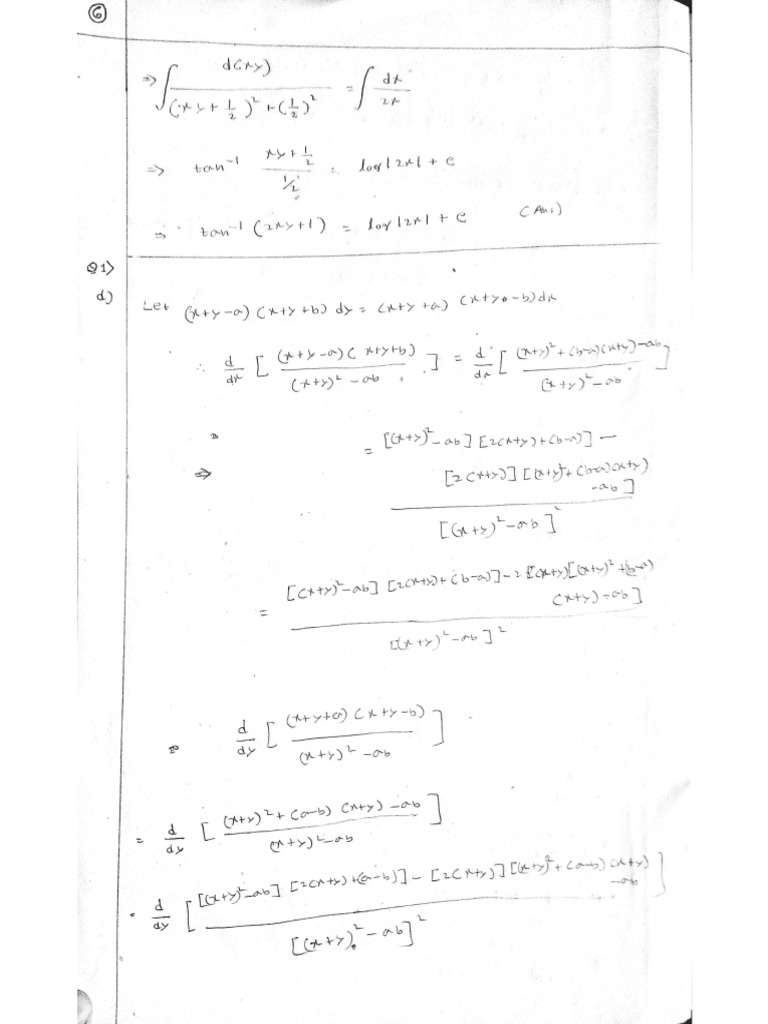 6
⇒ ∫ d(xy) / ((xy + 1/2)² + (1/2)²) = ∫ dx / 2x
⇒ tan⁻¹ (xy + 1/2) / (1/2) = log |2x| + c
⇒ tan⁻¹ (2xy + 1) = log |2x| + c (Ans)
Q1)
d) Let (x+y-a) (x+y+b) dy = (x+y+a) (x+y-b) dx
∴ d/dx [ (x+y-a)(x+y+b) / ((x+y)² - ab) ] = d/dx [ ((x+y)² + (b-a)(x+y) - ab) / ((x+y)² - ab) ]
⇒ = ( [(x+y)² - ab] [2(x+y) + (b-a)] - [2(x+y)] [(x+y)² + (b-a)(x+y) - ab] ) / [(x+y)² - ab]²
= ( [(x+y)² - ab] [2(x+y) + (b-a)] - 2 (x+y) [(x+y)² + (b-a) (x+y) - ab] ) / [(x+y)² - ab]²
d/dy [ (x+y+a) (x+y-b) / ((x+y)² - ab) ]
= d/dy [ ((x+y)² + (a-b) (x+y) - ab) / ((x+y)² - ab) ]
= d/dy [ ( [(x+y)² - ab] [2(x+y) + (a-b)] - [2(x+y)] [(x+y)² + (a-b) (x+y) - ab] ) / [(x+y)² - ab]² ]